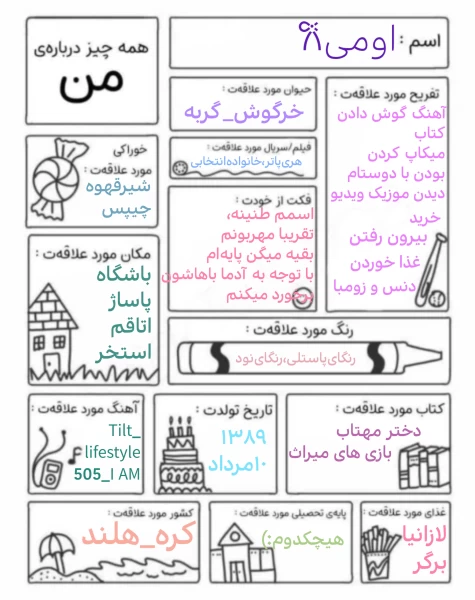 همه چیز درباره‌ی
من
اسم : اومی
حیوان مورد علاقه‌ت :
خرگوش_گربه
تفریح مورد علاقه‌ت :
آهنگ گوش دادن
کتاب
میکاپ کردن
بودن با دوستام
دیدن موزیک ویدیو
خرید
بیرون رفتن
غذا خوردن
دنس و زومبا
خوراکی
مورد علاقه‌ت :
شیرقهوه
چیپس
فیلم/سریال مورد علاقه‌ت :
هری‌پاتر،خانواده‌انتخابی
فکت از خودت :
اسمم طنینه،
تقریبا مهربونم
بقیه میگن پایه‌ام
با توجه به آدما باهاشون
برخورد میکنم
مکان مورد علاقه‌ت :
باشگاه
پاساژ
اتاقم
استخر
رنگ مورد علاقه‌ت :
رنگای‌پاستلی،رنگای‌نود
آهنگ مورد علاقه‌ت :
Tilt_
lifestyle
505_I AM
تاریخ تولدت :
۱۳۸۹
۱۰مرداد
کتاب مورد علاقه‌ت :
دختر مهتاب
بازی های میراث
کشور مورد علاقه‌ت :
کره_هلند
پایه‌ی تحصیلی مورد علاقه‌ت :
هیچکدوم:)
غذای مورد علاقه‌ت :
لازانیا
برگر